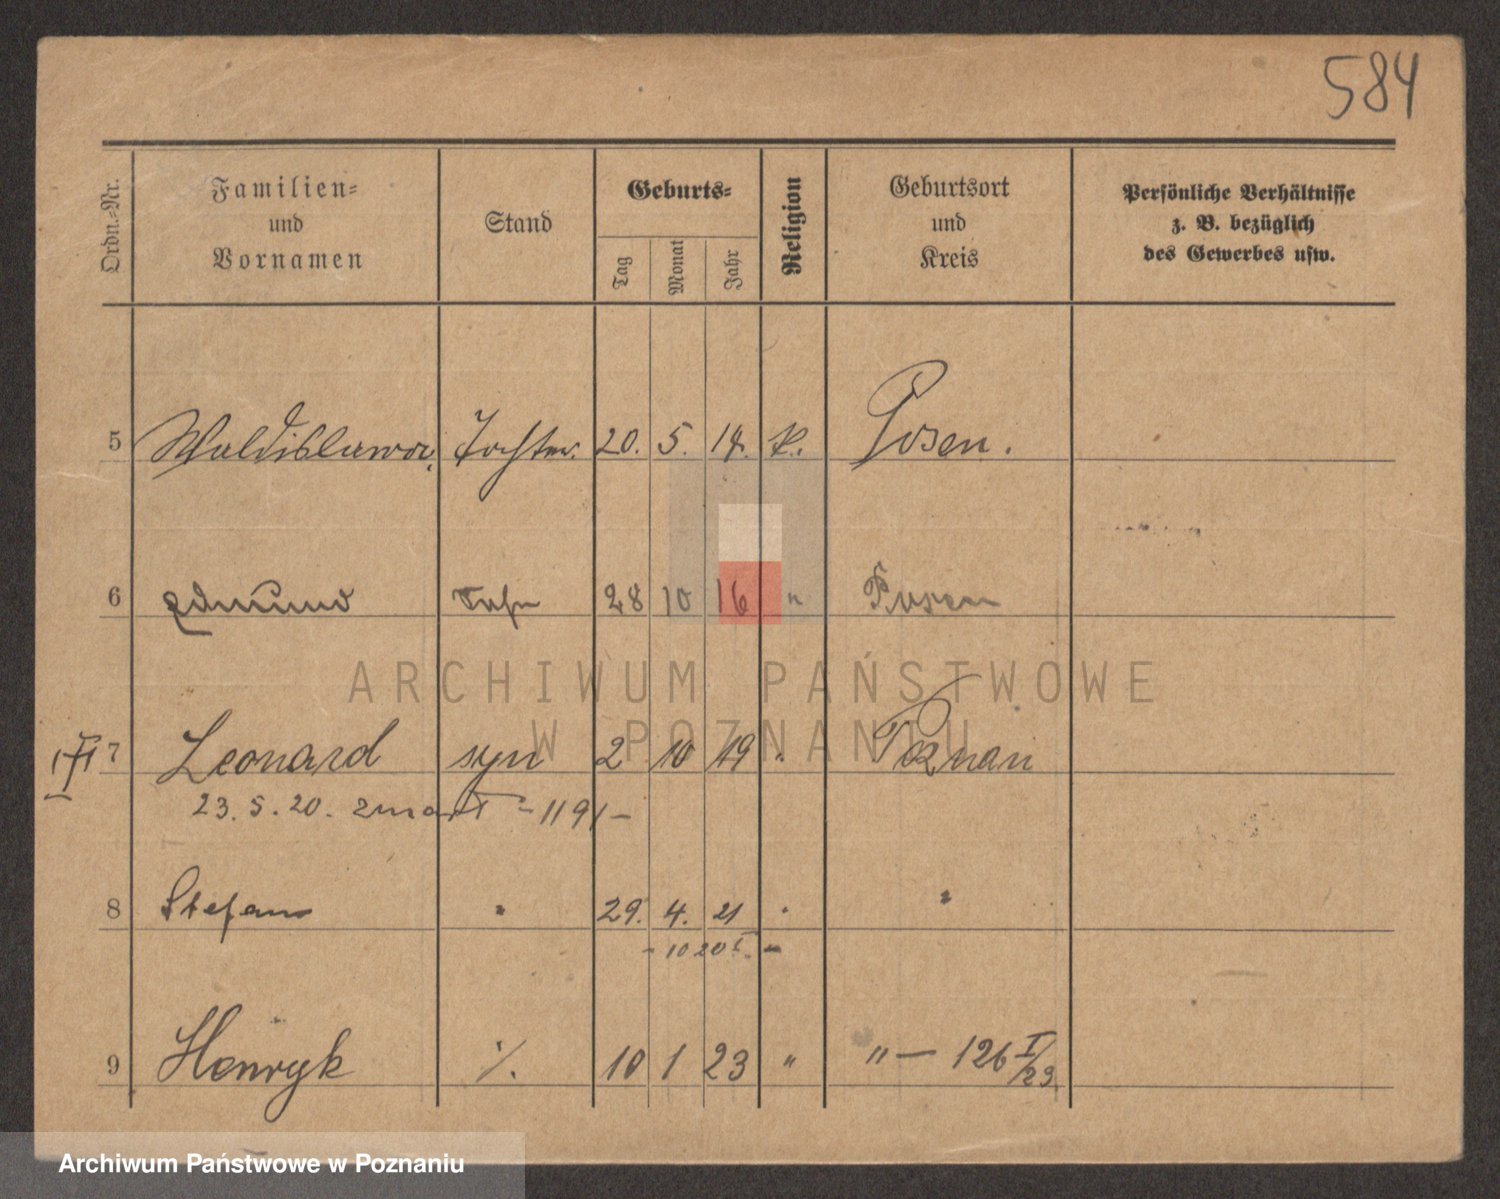 584
Ordn.-Nr. Familien- und Vornamen Stand Geburts- Tag Monat Jahr Religion Geburtsort und Kreis Persönliche Verhältnisse z. B. bezüglich des Gewerbes usw.
5 Waldislawa Tochter. 20. 5. 14. K. Posen.
6 Edmund Sohn 28 10 16 " Posen
ARCHIWUM PAŃSTWOWE
W POZNANIU
7 Leonard syn 2 10 19 " Poznan
23. 5. 20. zmarł - 1191 -
8 Stefan " 29. 4. 21 " "
- 1020 I. -
9 Henryk ./. 10 1 23 " " — 126 I/23
Archiwum Państwowe w Poznaniu